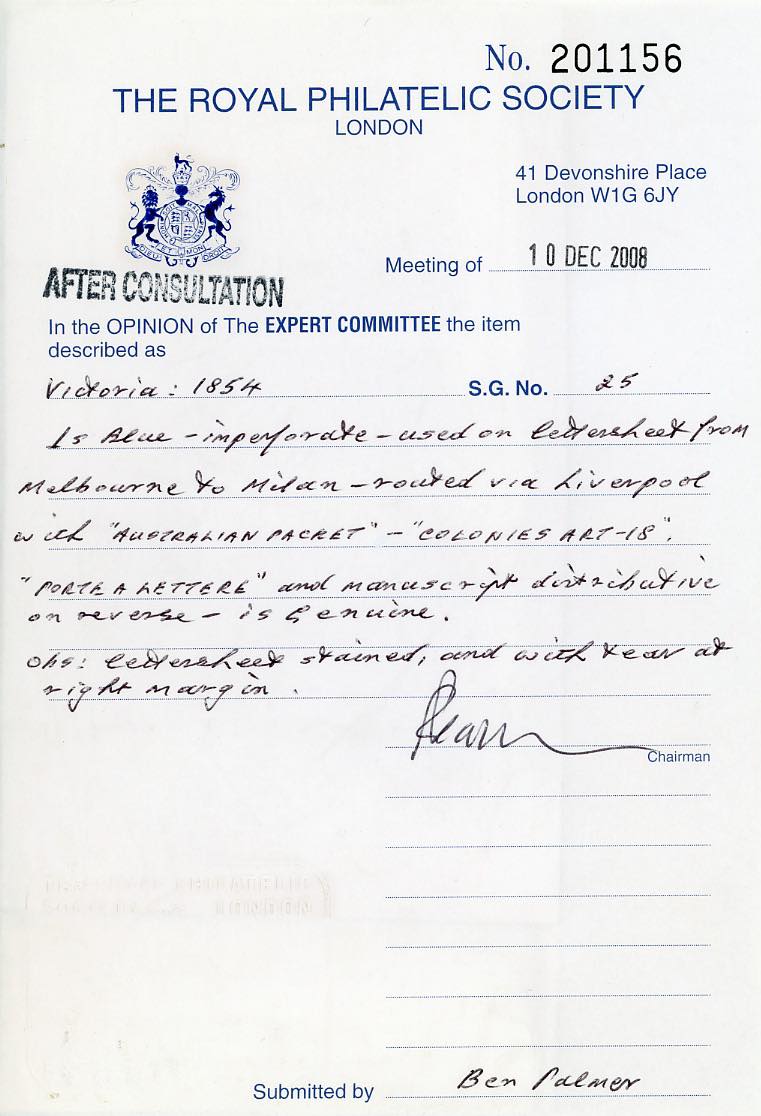 No. 201156
THE ROYAL PHILATELIC SOCIETY
LONDON
41 Devonshire Place
London W1G 6JY
DIEU ET MON DROIT
Meeting of 10 DEC 2008
AFTER CONSULTATION
In the OPINION of The EXPERT COMMITTEE the item
described as
Victoria: 1854 S.G. No. 25
1s Blue - imperforate - used on lettersheet from
Melbourne to Milan - routed via Liverpool
with "AUSTRALIAN PACKET" - "COLONIES ART-18".
"PORTE A LETTERE" and manuscript distributive
on reverse - is genuine.
Obs: lettersheet stained, and with tear at
right margin.
Chairman
Submitted by Ben Palmer